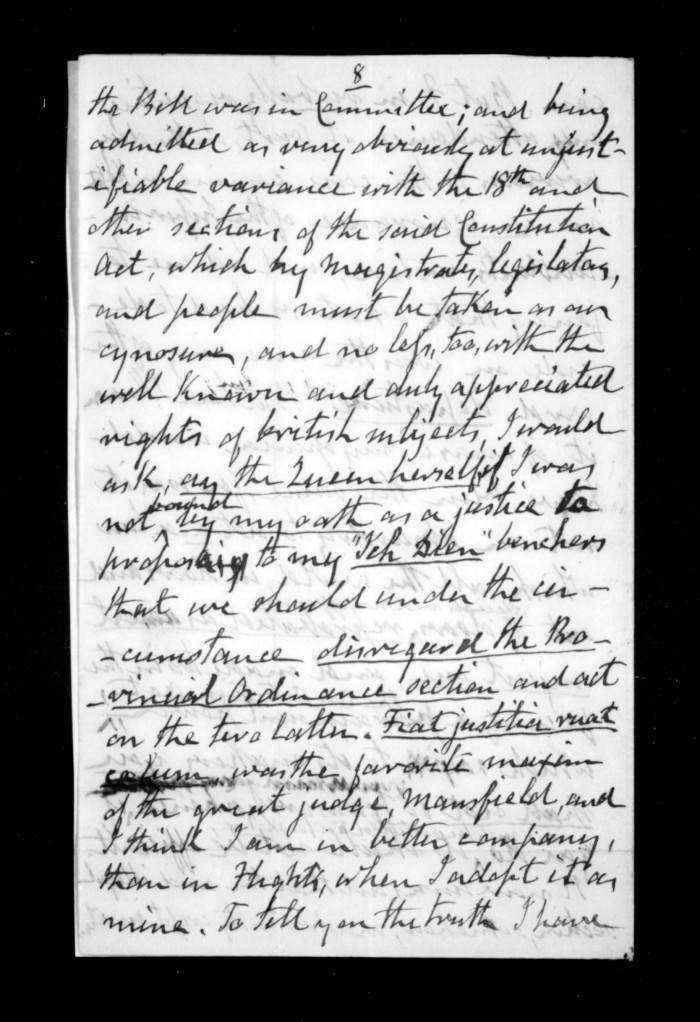 8
the Bill was in Committee; and being
admitted as very obviously at unjust-
-ifiable variance with the 18th and
other sections of the said Constitution
Act, which by Magistrates, legislators,
and people must be taken as our
cynosure, and no less, too, with the
well known and duly appreciated
rights of british subjects, I would
ask, any the Queen herself, if I was
not bound by my oath as a justice to
proposing to my "Ich Dien" benchers
that we should under the cir-
-cumstance disregard the Pro-
-vincial Ordinance section and act
on the two latter. Fiat justitia ruat
coelum, was the favorite maxim
of the great judge, Mansfield, and
I think I am in better company,
than in , when I adopt it as
mine. To tell you the truth I have